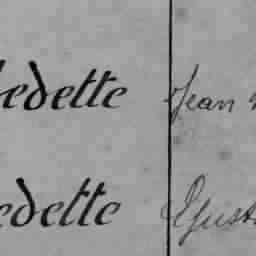 edette Jean
edette